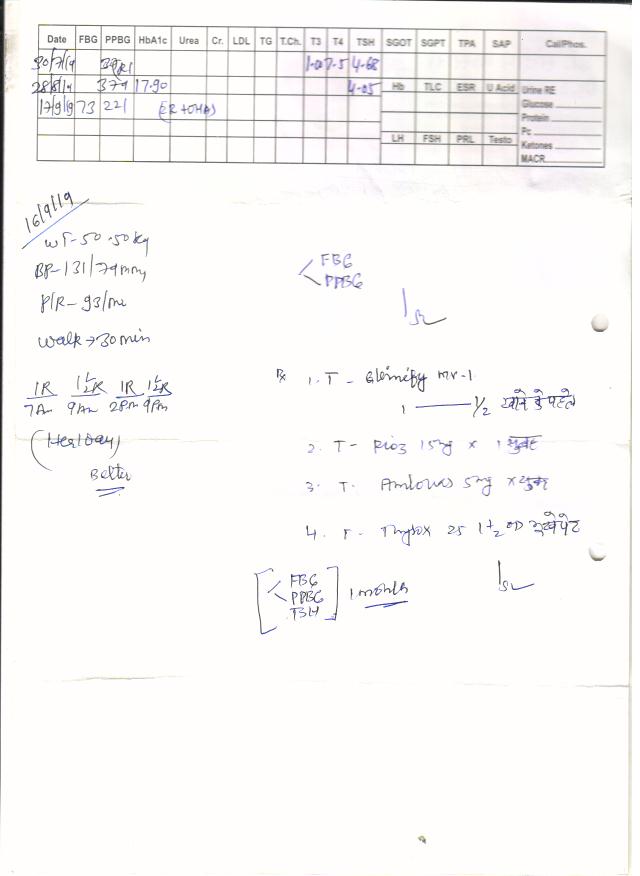 Date FBG PPBG HbA1c Urea Cr. LDL TG T.Ch. T3 T4 TSH SGOT SGPT TPA SAP Cal/Phos.
30/7/19 1.07 7.5 4.68
28/8/19 379 17.90 4.05 Hb TLC ESR U Acid Urine RE
Glucose
17/9/19 73 221 (R+OHAs)
Protein
Pc
LH FSH PRL Testo Ketones
MACR
16/9/19
WT-50.50kg
BP-131/79mm
P/R-93/m
walk→30min
FBG
PPBG
1R 1½R 1R 1½R
7Am 9Am 2Pm 9Pm
Better
Rx 1. T - Glimify mv-1
1 — 1/2 खाने से पहले
2. T - Pioz 15mg x 1 सुबह
3. T. 5mg x सुबह
4. T - Thyrox 25 1½ OD
FBG
PPBG
TSH
1 month